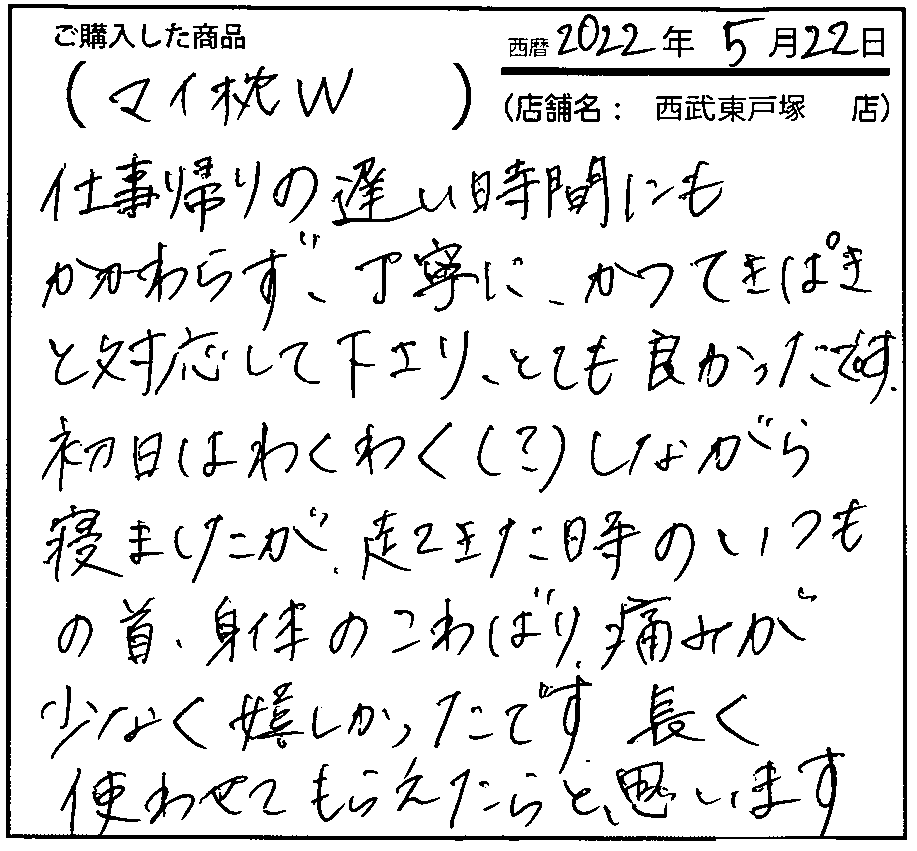 ご購入した商品
西暦 2022年 5月22日
(マイ枕W)
(店舗名: 西武東戸塚 店)
仕事帰りの遅い時間にも
かかわらず、丁寧に、かつてきぱき
と対応して下さり、とても良かったです。
初日はわくわく(?)しながら
寝ましたが、起きた時のいつも
の首、身体のこわばり、痛みが
少なく嬉しかったです。長く
使わせてもらえたらと思います